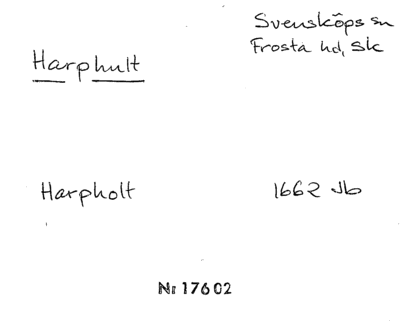 Svensköps sn
Frosta hd, Sk
Harphult
Harpholt 1662 Jb
Nr 17602